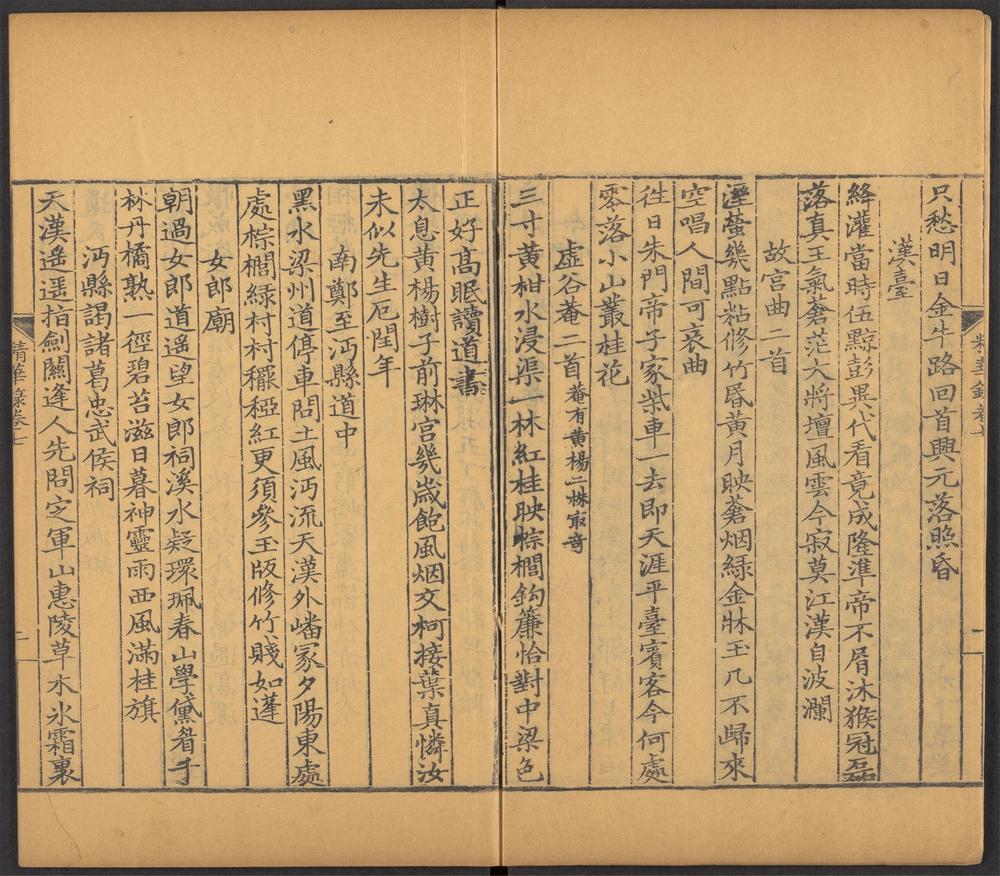 只愁明日金牛路回首興元落照昏
漢臺
絳灌當時伍黥彭異代看竟成隆準帝不屑沐猴冠磊
落真王氣蒼茫大將壇風雲今寂莫江漢自波瀾
故宮曲二首
溼螢幾點粘修竹昏黃月映蒼烟綠金牀玉几不歸來
空唱人間可哀曲
往日朱門帝子家柴車一去即天涯平臺賓客今何處
零落小山叢桂花
虛谷菴二首菴有黃楊二株㝡竒
三寸黃柑水浸渠一林紅桂映棕櫚鈎簾恰對中梁色
正好高眠讀道書
太息黃楊樹子前琳宮幾歲飽風烟交柯接葉真憐汝
未似先生厄閏年
南鄭至沔縣道中
黑水梁州道停車問土風沔流天漢外嶓冢夕陽東處
處棕櫚綠村村䆉稏紅更須參玉版修竹賤如蓬
女郎廟
朝過女郎道遥望女郎祠溪水疑環珮春山學黛眉千
林丹橘熟一徑碧苔滋日暮神靈雨西風滿桂旗
沔縣謁諸葛忠武侯祠
天漢遥遥指劍關逢人先問定軍山惠陵草木氷霜裏
精華錄卷七
二